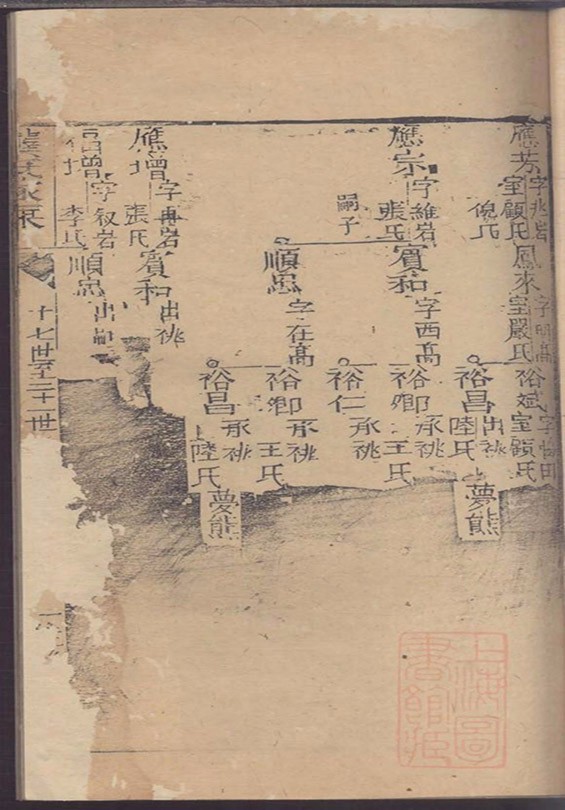 應芳
字兆岩
室顧氏
倪氏
鳳來
室嚴氏
裕斌
室顧氏
裕昌
出祧
陸氏
夢熊
應宗
字維岩
張氏
嗣子
賓和
字西高
裕卿
承祧
王氏
裕仁
承祧
順忠
字在高
裕卿
承祧
王氏
裕昌
承祧
陸氏
夢熊
應增
字冉岩
張氏
賓和
出祧
增
字叙岩
李氏
順忠
出
十七世至二十一世
上海圖書館藏